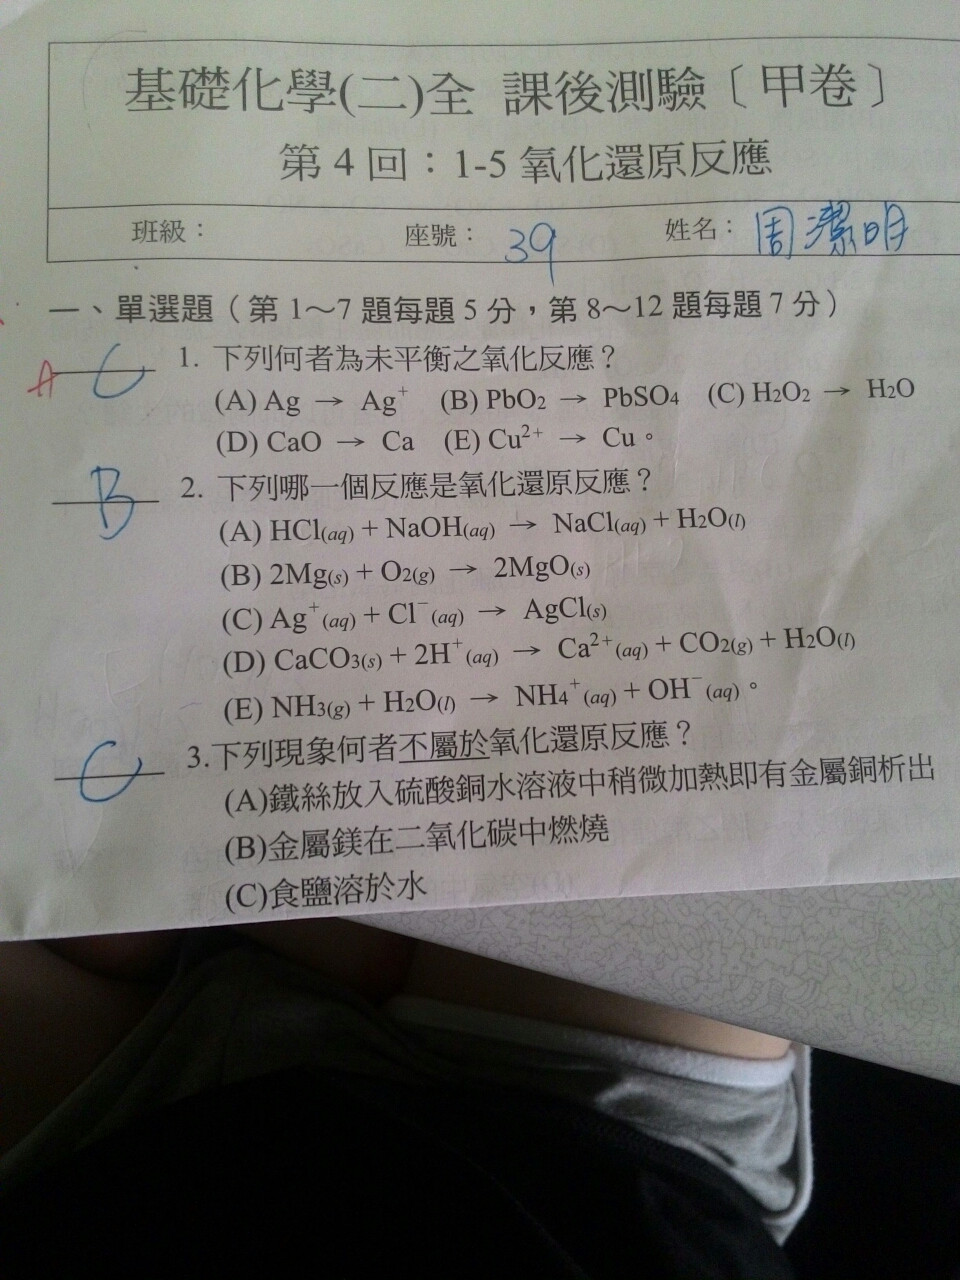 基礎化學(二)全 課後測驗〔甲卷〕
第 4 回：1-5 氧化還原反應
班級： 座號： 39 姓名： 周潔明
一、單選題（第 1～7 題每題 5 分，第 8～12 題每題 7 分）
A C 1. 下列何者為未平衡之氧化反應？
(A) Ag → Ag⁺ (B) PbO₂ → PbSO₄ (C) H₂O₂ → H₂O
(D) CaO → Ca (E) Cu²⁺ → Cu。
B 2. 下列哪一個反應是氧化還原反應？
(A) HCl(aq) + NaOH(aq) → NaCl(aq) + H₂O(l)
(B) 2Mg(s) + O₂(g) → 2MgO(s)
(C) Ag⁺(aq) + Cl⁻(aq) → AgCl(s)
(D) CaCO₃(s) + 2H⁺(aq) → Ca²⁺(aq) + CO₂(g) + H₂O(l)
(E) NH₃(g) + H₂O(l) → NH₄⁺(aq) + OH⁻(aq)。
C 3.下列現象何者不屬於氧化還原反應？
(A)鐵絲放入硫酸銅水溶液中稍微加熱即有金屬銅析出
(B)金屬鎂在二氧化碳中燃燒
(C)食鹽溶於水